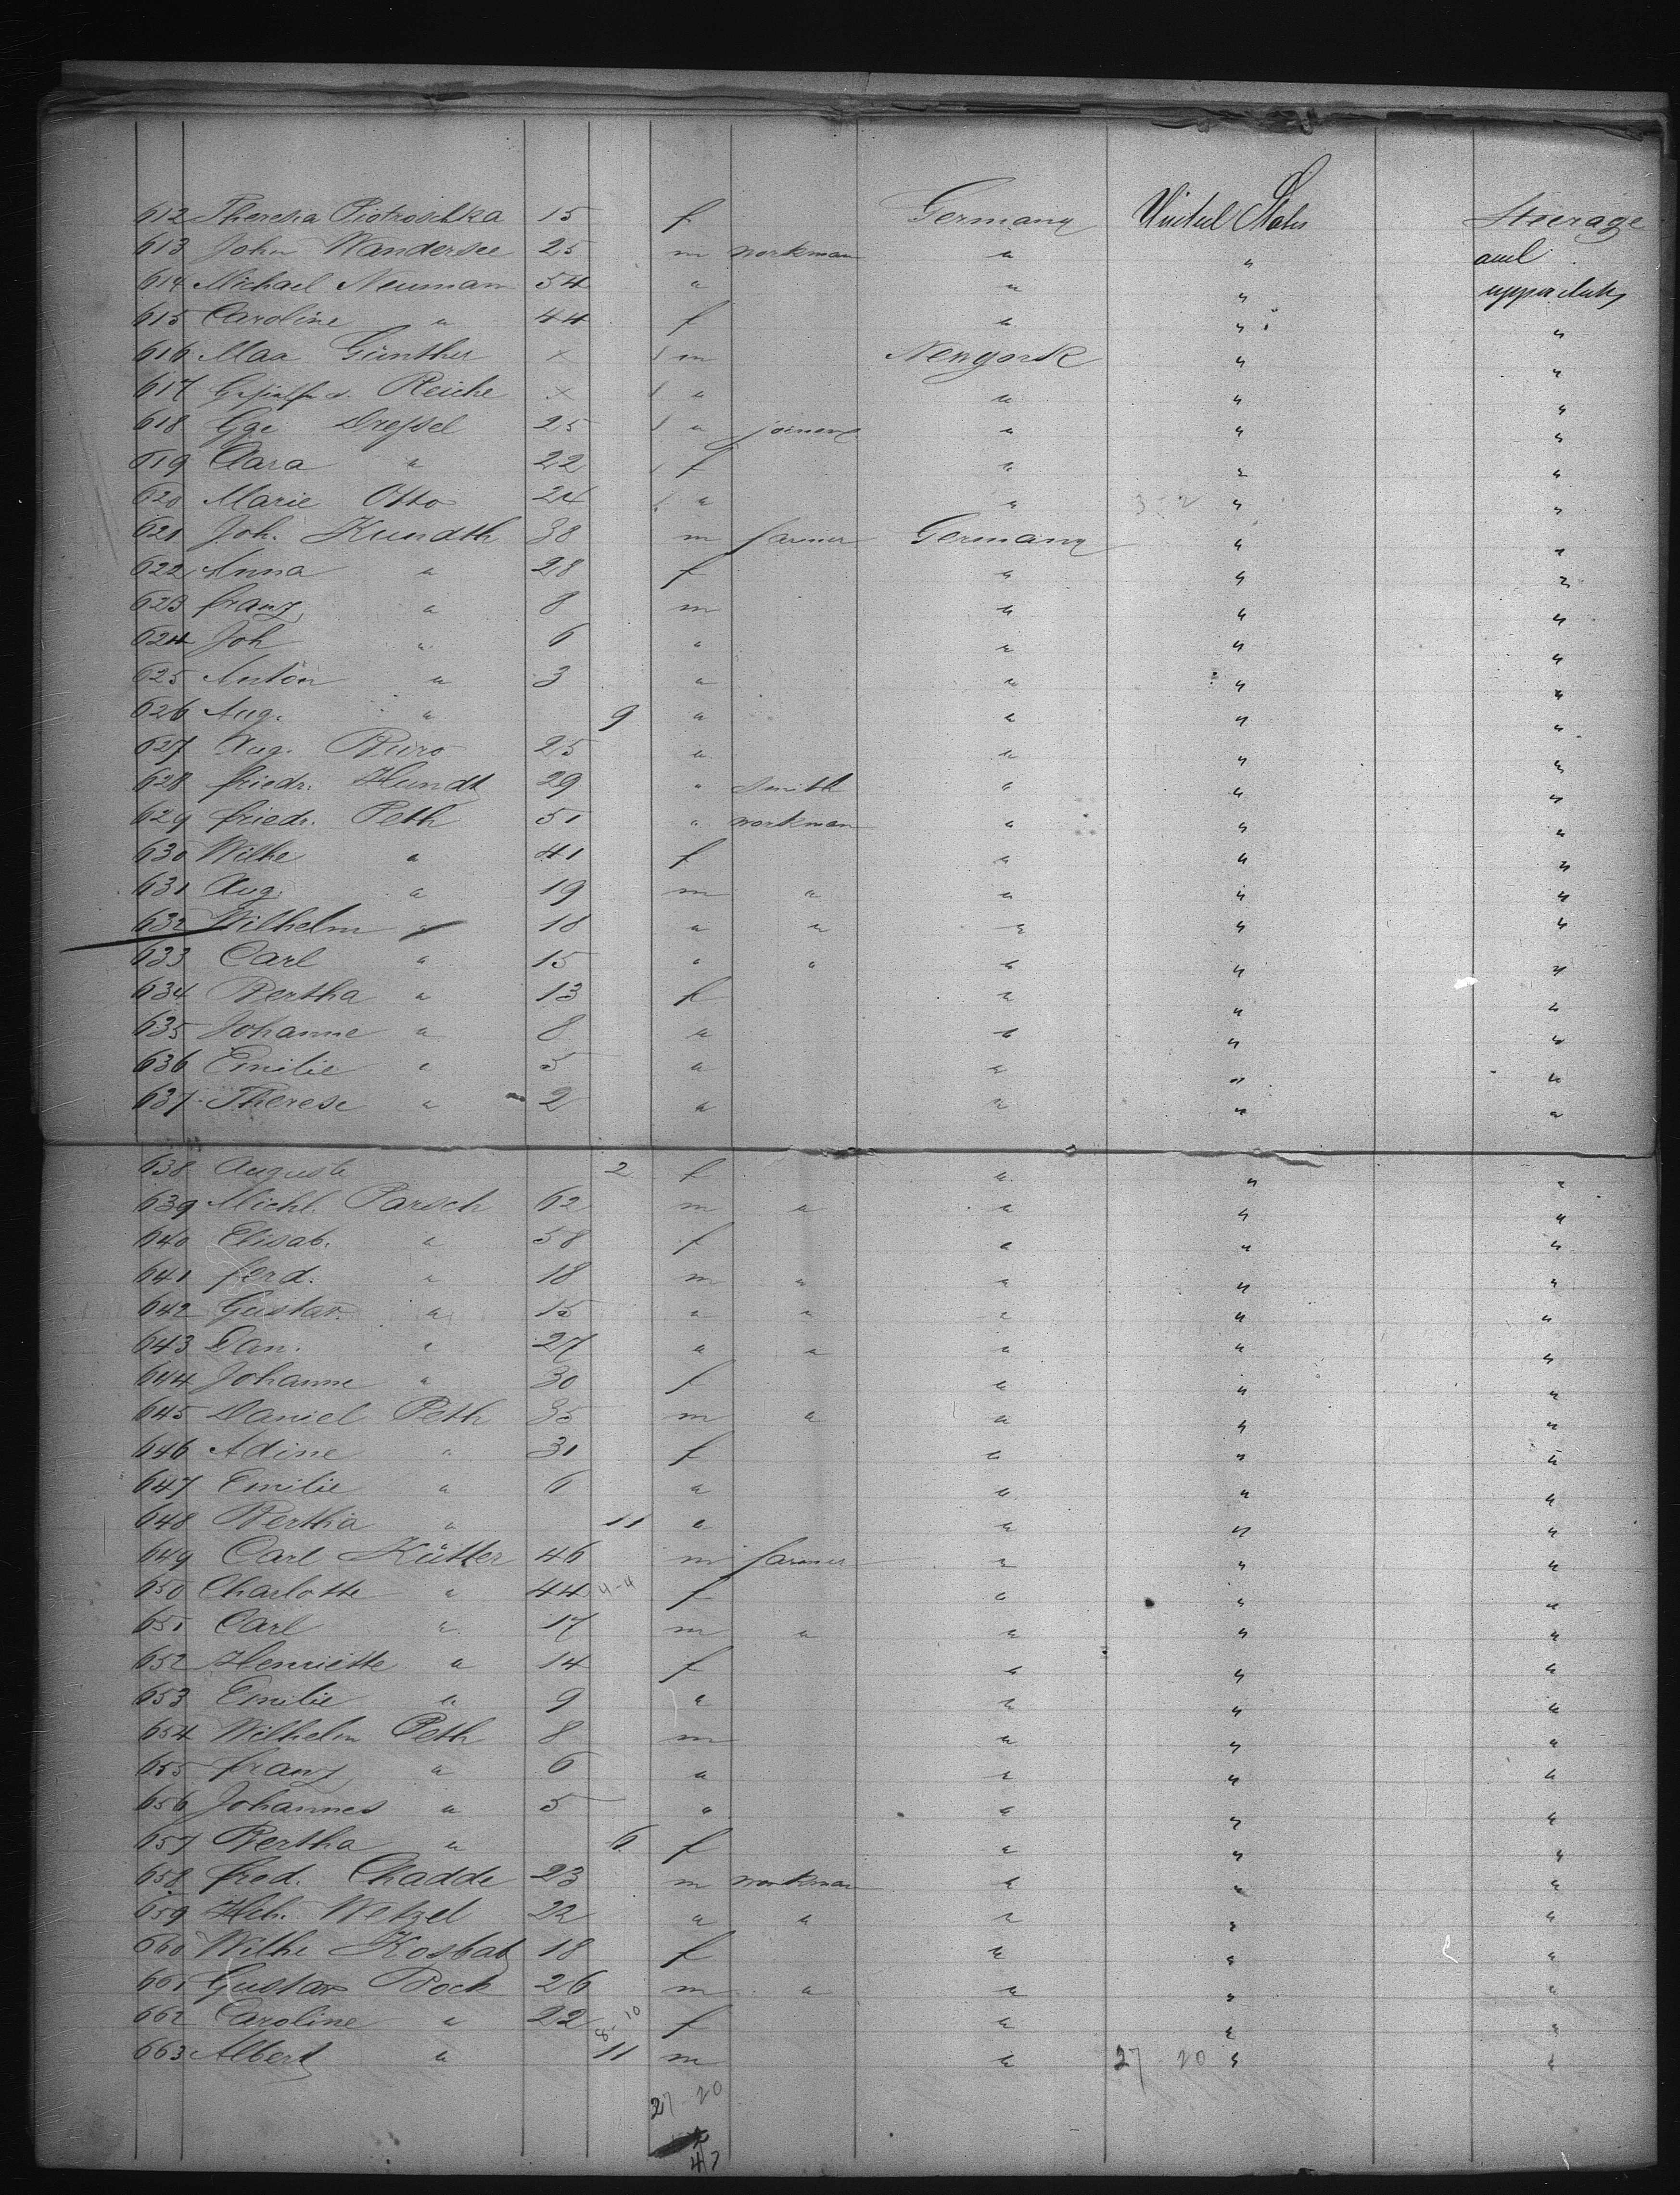 612 Theresia Piotroschka 15 f Germany United States Steerage
613 John Wandersee 25 m workman " " and
614 Michael Neumann 54 " " " upper deck
615 Caroline " 44 f " " "
616 Max Günther × m Newyork " "
617 Reiche × " " " "
618 Gge Dressel 25 " joiner " " "
619 Clara " 22 f " " "
620 Marie Otto 24 " " 3-2 " "
621 Joh. Kundth 38 m farmer Germany " "
622 Anna " 28 f " " "
623 franz " 8 m " " "
624 Joh " 6 " " " "
625 Anton " 3 " " " "
626 Aug. " 9 " " " "
627 Aug. 25 " " " "
628 friedr. Hundt 29 " smith " " "
629 friedr. Peth 51 " workman " " "
630 Wilhe " 41 f " " "
631 Aug. " 19 m " " " "
632 Wilhelm " 18 " " " " "
633 Carl " 15 " " " " "
634 Bertha " 13 f " " "
635 Johanne " 8 " " " "
636 Emilie " 5 " " " "
637 Therese " 2 " " " "
638 Auguste 2 f " " "
639 Michl. Parsch 62 m " " " "
640 Elisab. " 58 f " " "
641 ferd. " 18 m " " " "
642 Gustav. " 15 " " " " "
643 Dan. " 27 " " " " "
644 Johanne " 30 f " " "
645 Daniel Peth 35 m " " " "
646 Adine " 31 f " " "
647 Emilie " 6 " " " "
648 Bertha " 11 " " " "
649 Carl Kütter 46 m farmer " " "
650 Charlotte " 44 4-4 f " " "
651 Carl " 17 m " " " "
652 Henriette " 14 f " " "
653 Emilie " 9 " " " "
654 Wilhelm Peth 8 m " " "
655 franz " 6 " " " "
656 Johannes " 5 " " " "
657 Bertha " 6 f " " "
658 fred. Chadde 23 m workman " " "
659 Hch. Wetzel 22 " " " " "
660 Wilhe 18 f " " "
661 Gustav Bock 26 m " " " "
662 Caroline " 22 8-10 f " " "
663 Albert " 11 m " 27-20 " "
27-20
47